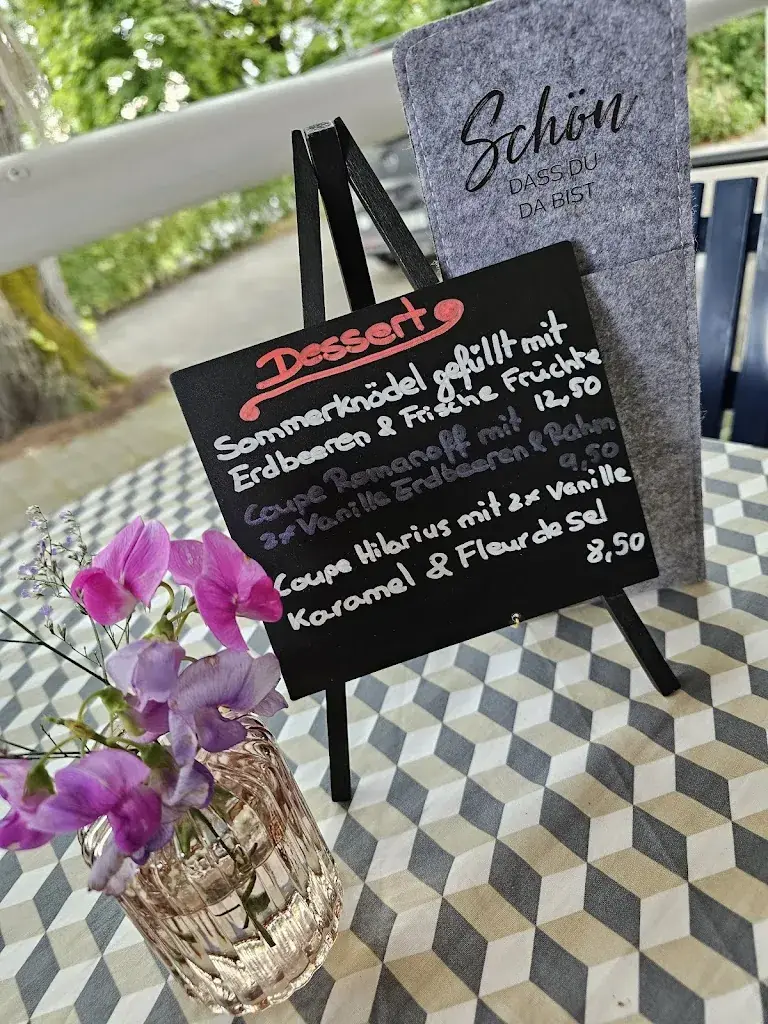 Schön
DASS DU
DA BIST
Dessert
Sommerknödel gefüllt mit
Erdbeeren & Frische Früchte
12,50
Coupe Romanoff mit
2x Vanille Erdbeeren & Rahm
9,50
Coupe Hilarius mit 2x Vanille
Karamel & Fleur de Sel
8,50